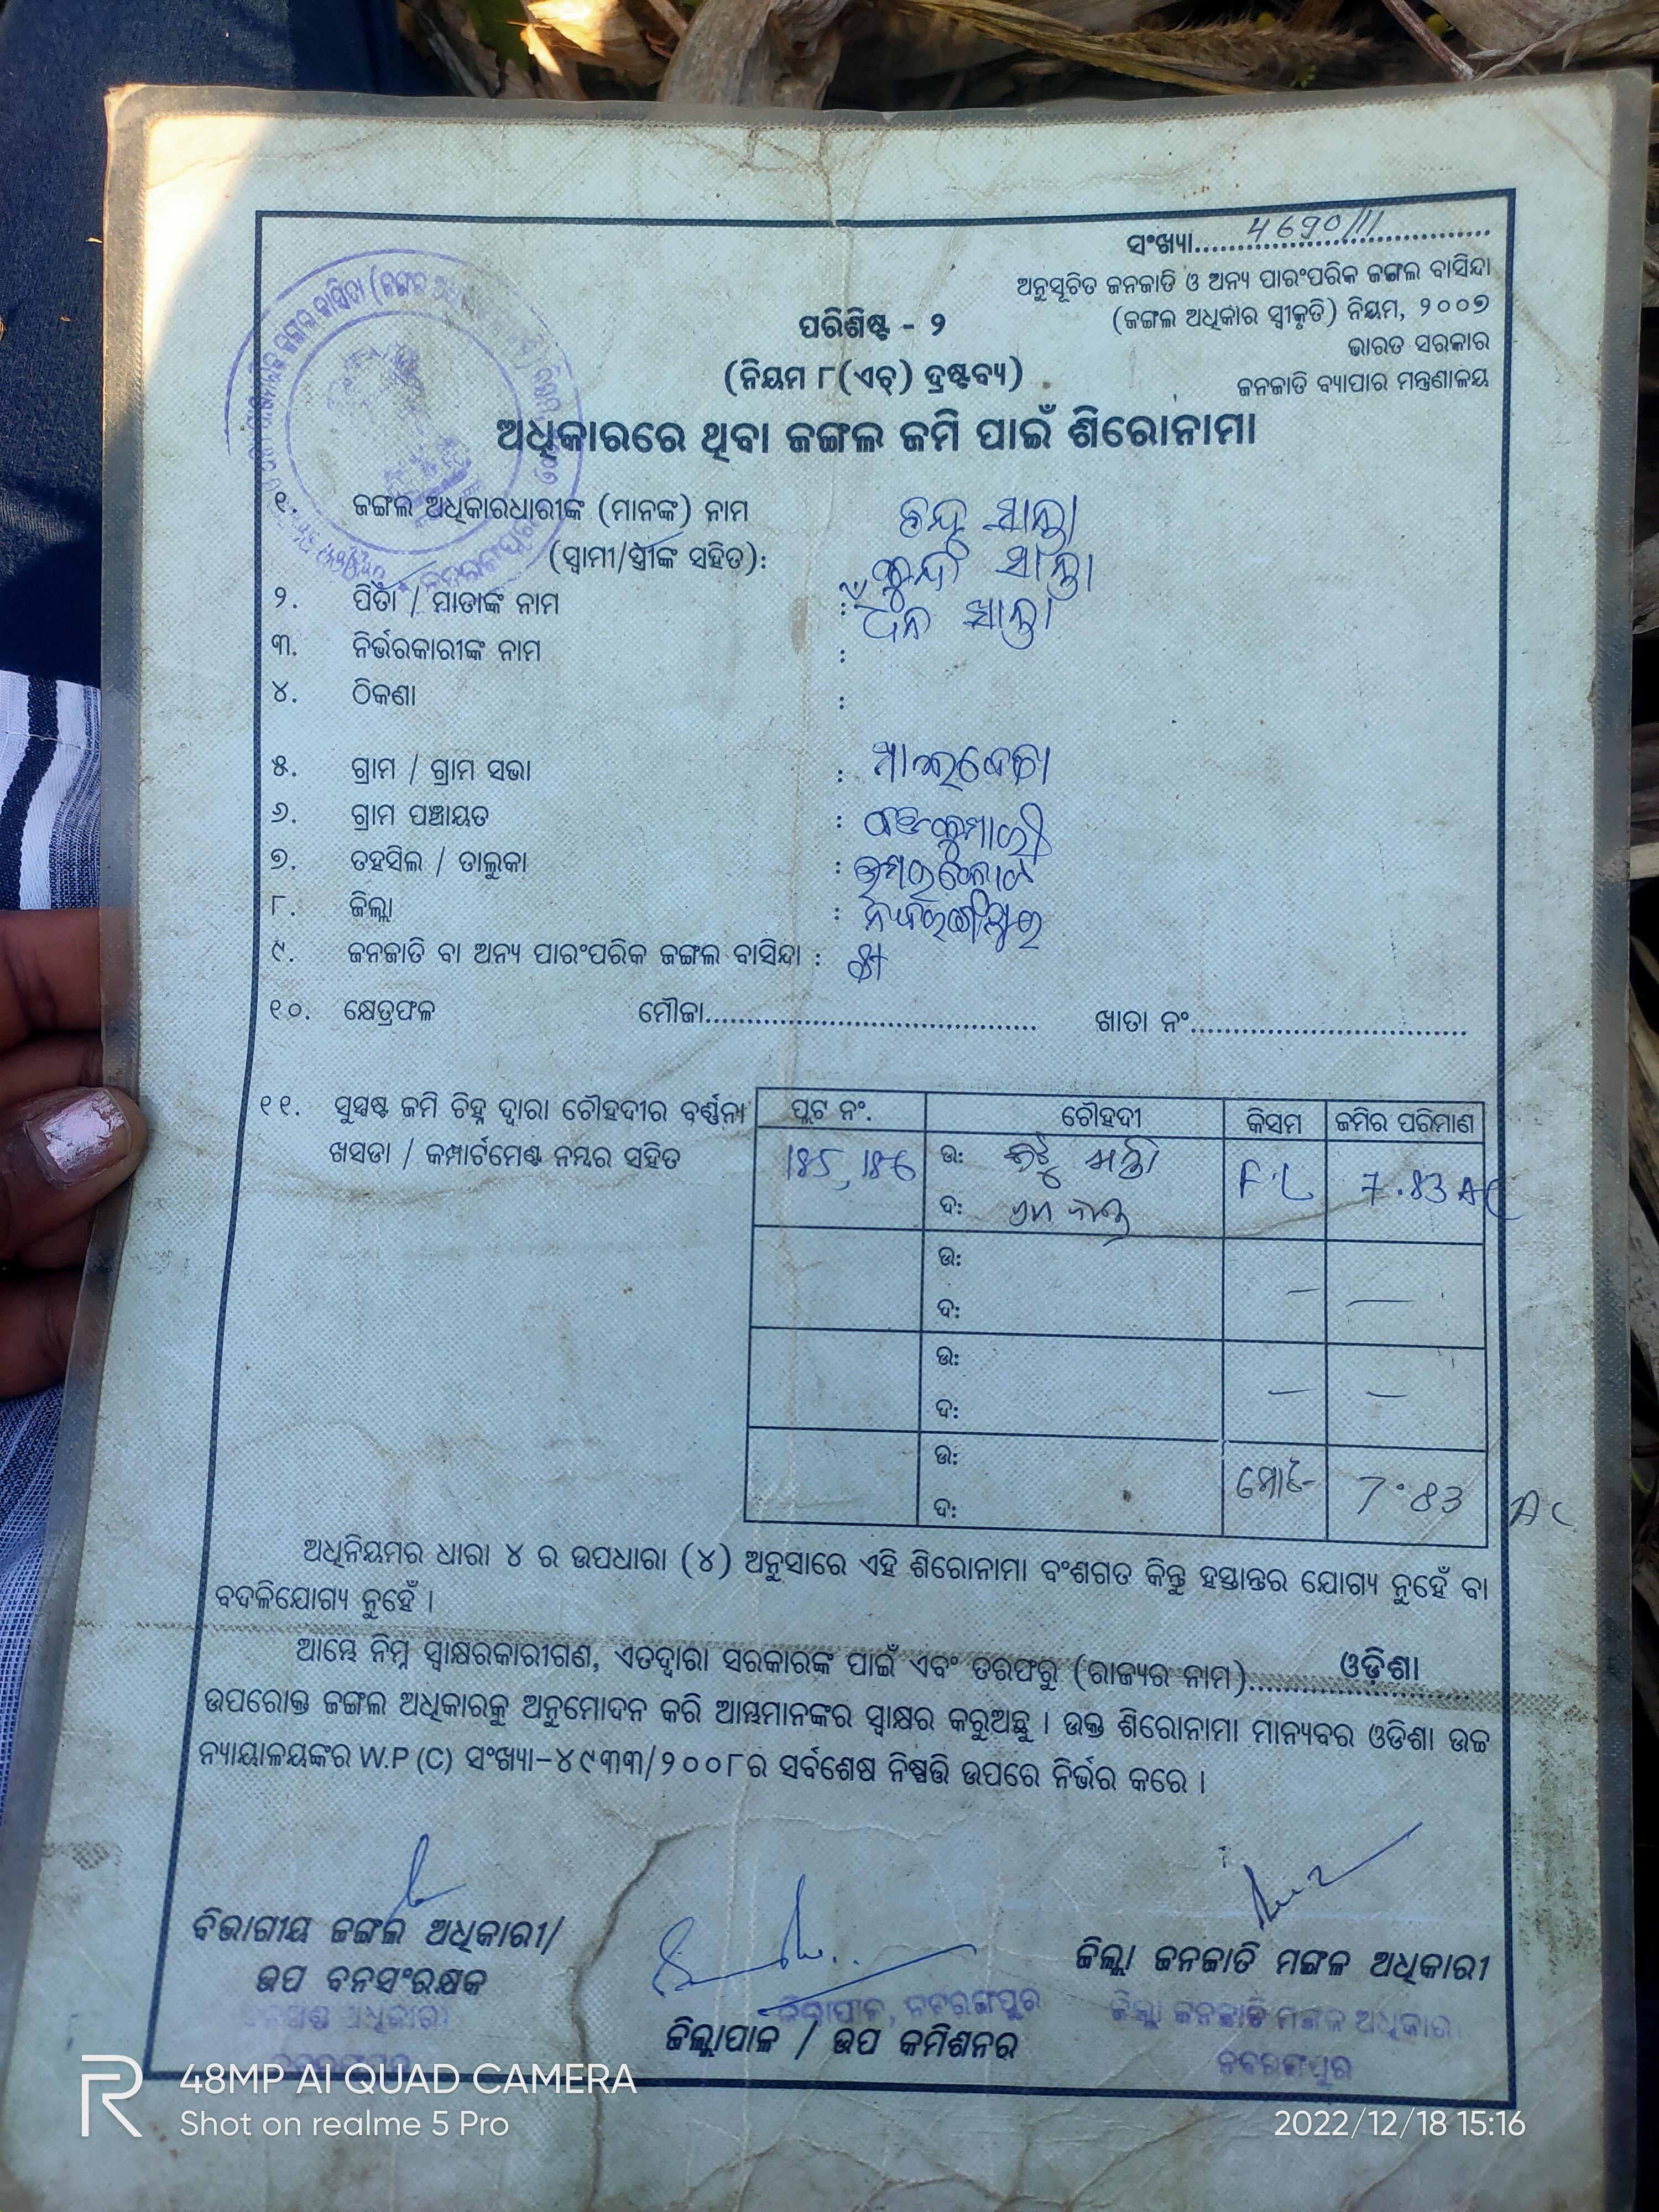 સંଖ୍ୟା.......4690/11.......
ଅନୁସୂଚିତ ଜନଜାତି ଓ ଅନ୍ୟ ପାରଂପରିକ ଜଙ୍ଗଲ ବାସିନ୍ଦା
(ଜଙ୍ଗଲ ଅଧିକାର ସ୍ୱୀକୃତି) ନିୟମ, ୨୦୦୭
ଭାରତ ସରକାର
ଜନଜାତି ବ୍ୟାପାର ମନ୍ତ୍ରଣାଳୟ
ପରିଶିଷ୍ଟ - ୨
(ନିୟମ ୮(ଏଚ୍) ଦ୍ରଷ୍ଟବ୍ୟ)
ଅଧିକାରରେ ଥିବା ଜଙ୍ଗଲ ଜମି ପାଇଁ ଶିରୋନାମା
୧. ଜଙ୍ଗଲ ଅଧିକାରଧାରୀଙ୍କ (ମାନଙ୍କ) ନାମ
(ସ୍ୱାମୀ/ସ୍ତ୍ରୀଙ୍କ ସହିତ):
୨. ପିତା / ମାତାଙ୍କ ନାମ :
୩. ନିର୍ଭରକାରୀଙ୍କ ନାମ :
୪. ଠିକଣା :
୫. ଗ୍ରାମ / ଗ୍ରାମ ସଭା :
୬. ଗ୍ରାମ ପଞ୍ଚାୟତ :
୭. ତହସିଲ / ତାଲୁକା :
୮. ଜିଲ୍ଲା :
୯. ଜନଜାତି ବା ଅନ୍ୟ ପାରଂପରିକ ଜଙ୍ଗଲ ବାସିନ୍ଦା :
୧୦. କ୍ଷେତ୍ରଫଳ ମୌଜା.................... ଖାତା ନଂ....................
୧୧. ସୁସ୍ପଷ୍ଟ ଜମି ଚିହ୍ନ ଦ୍ୱାରା ଚୌହଦୀର ବର୍ଣ୍ଣନା
ଖସଡା / କମ୍ପାର୍ଟମେଣ୍ଟ ନମ୍ବର ସହିତ
ପ୍ଲଟ ନଂ. ଚୌହଦୀ କିସମ ଜମିର ପରିମାଣ
ଉ: F.L 7.83 AC
ଦ:
ଉ:
ଦ:
ଉ:
ଦ:
ଉ: ମୋଟ 7.83 AC
ଦ:
ଅଧିନିୟମର ଧାରା ୪ ର ଉପଧାରା (୪) ଅନୁସାରେ ଏହି ଶିରୋନାମା ବଂଶଗତ କିନ୍ତୁ ହସ୍ତାନ୍ତର ଯୋଗ୍ୟ ନୁହେଁ ବା
ବଦଳିଯୋଗ୍ୟ ନୁହେଁ ।
ଆମ୍ଭେ ନିମ୍ନ ସ୍ୱାକ୍ଷରକାରୀଗଣ, ଏତଦ୍ୱାରା ସରକାରଙ୍କ ପାଇଁ ଏବଂ ତରଫରୁ (ରାଜ୍ୟର ନାମ)..........ଓଡ଼ିଶା..........
ଉପରୋକ୍ତ ଜଙ୍ଗଲ ଅଧିକାରକୁ ଅନୁମୋଦନ କରି ଆମ୍ଭମାନଙ୍କର ସ୍ୱାକ୍ଷର କରୁଅଛୁ । ଉକ୍ତ ଶିରୋନାମା ମାନ୍ୟବର ଓଡିଶା ଉଚ୍ଚ
ନ୍ୟାୟାଳୟଙ୍କର W.P (C) ସଂଖ୍ୟା-୪୯୩୩/୨୦୦୮ର ସର୍ବଶେଷ ନିଷ୍ପତ୍ତି ଉପରେ ନିର୍ଭର କରେ ।
ବିଭାଗୀୟ ଜଙ୍ଗଲ ଅଧିକାରୀ/
ଉପ ବନସଂରକ୍ଷକ
ଜିଲ୍ଲାପାଳ, ନବରଙ୍ଗପୁର
ଜିଲ୍ଲାପାଳ / ଉପ କମିଶନର
ଜିଲ୍ଲା ଜନଜାତି ମଙ୍ଗଳ ଅଧିକାରୀ
ଜିଲ୍ଲା ଜନଜାତି ମଙ୍ଗଳ ଅଧିକାରୀ
ନବରଙ୍ଗପୁର
48MP AI QUAD CAMERA
Shot on realme 5 Pro
2022/12/18 15:16